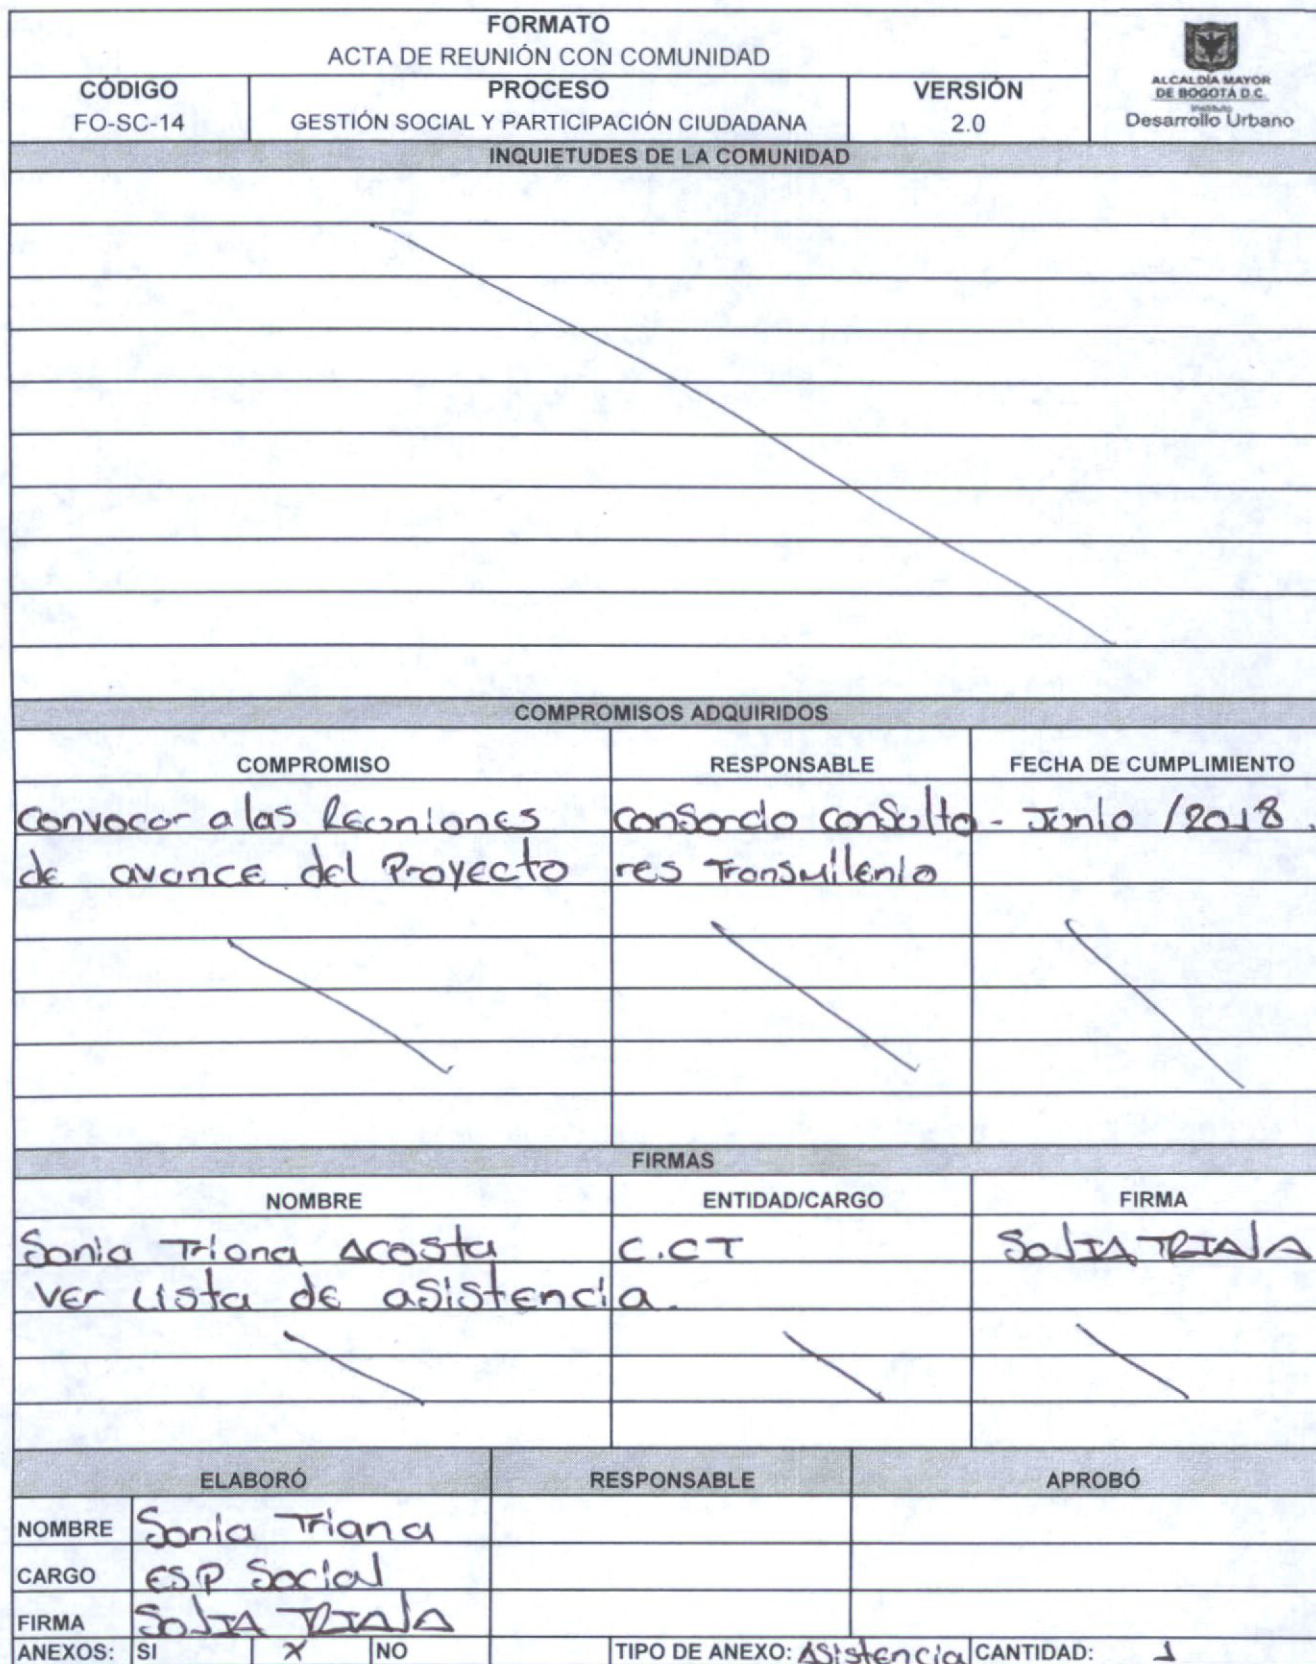 FORMATO
ACTA DE REUNIÓN CON COMUNIDAD
CÓDIGO PROCESO VERSIÓN
FO-SC-14 GESTIÓN SOCIAL Y PARTICIPACIÓN CIUDADANA 2.0
ALCALDÍA MAYOR
DE BOGOTÁ D.C.
Instituto
Desarrollo Urbano
INQUIETUDES DE LA COMUNIDAD
COMPROMISOS ADQUIRIDOS
COMPROMISO RESPONSABLE FECHA DE CUMPLIMIENTO
Convocar a las Reuniones Consorcio Consulto- Junio /2018.
de avance del Proyecto res Transmilenio
FIRMAS
NOMBRE ENTIDAD/CARGO FIRMA
Sonia Triana Acosta C.CT SONIA TRIANA
Ver Lista de asistencia.
ELABORÓ RESPONSABLE APROBÓ
NOMBRE Sonia Triana
CARGO ESP Social
FIRMA SONIA TRIANA
ANEXOS: SI X NO TIPO DE ANEXO: Asistencia CANTIDAD: 1